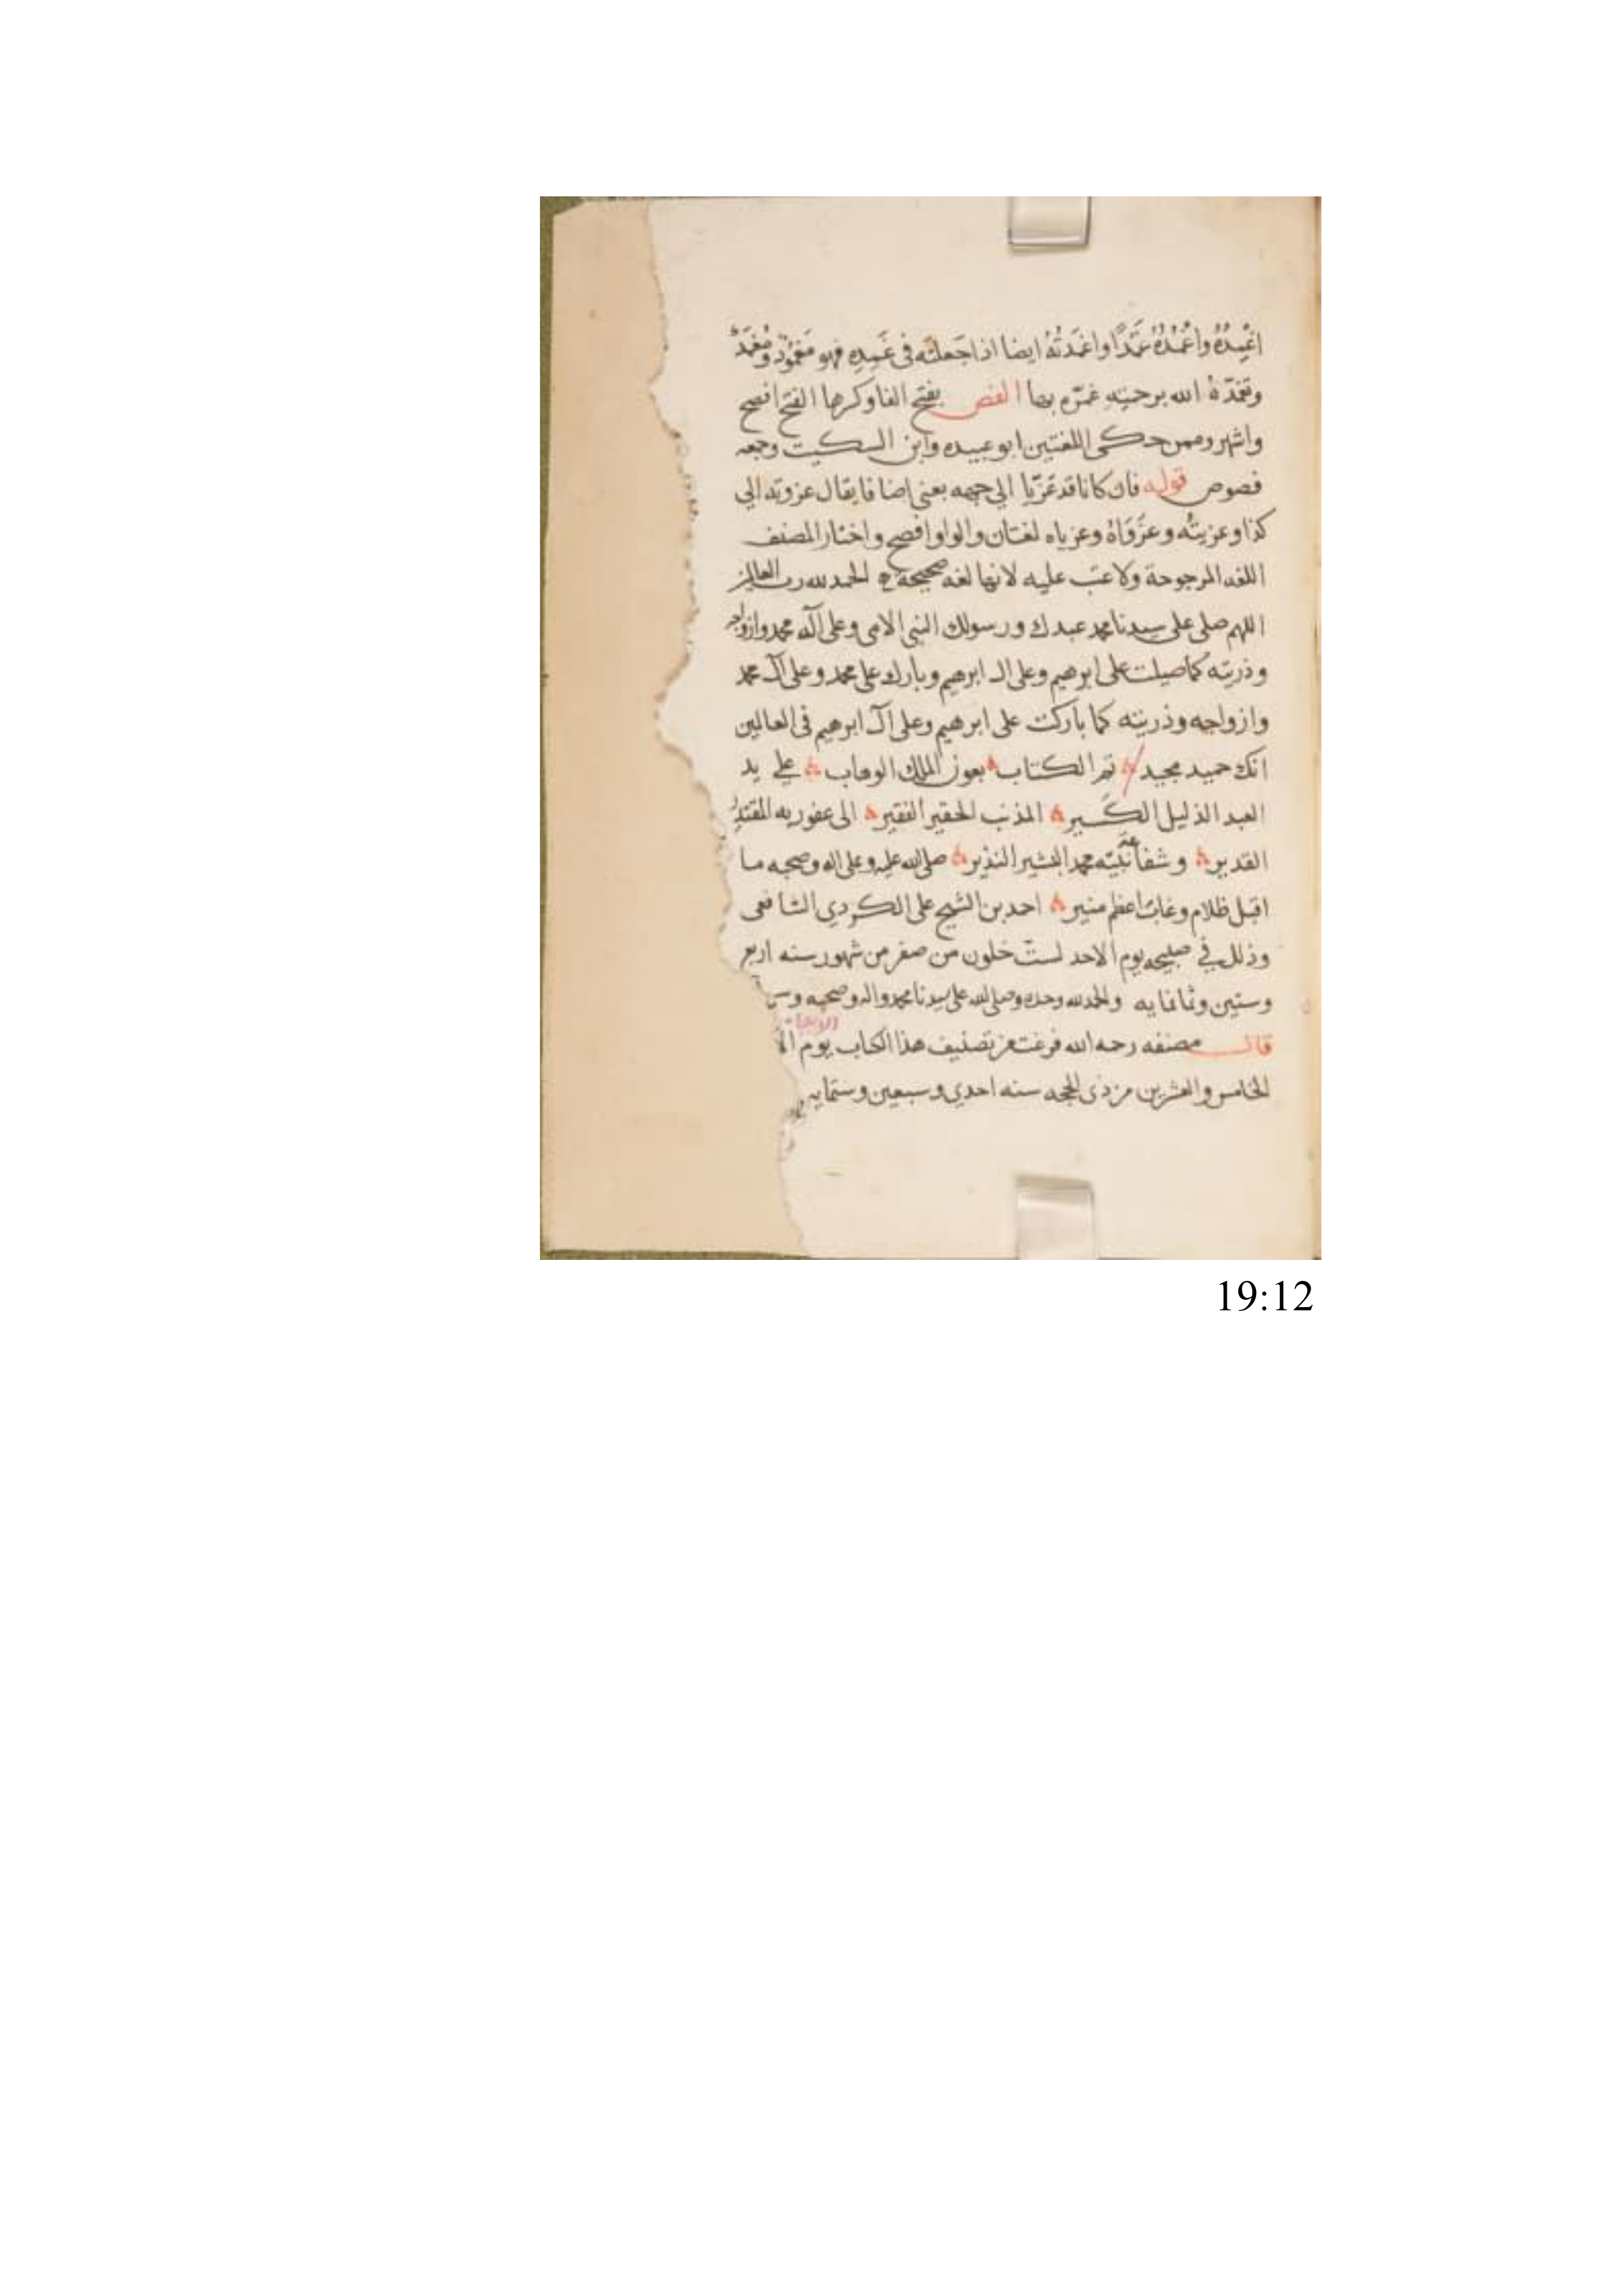 اغْمِدُهُ واغْمُدُهُ غَمْدًا واغمَدتُهُ ايضا اذا جَعلته في غَمِدِهِ فهو مَغمُوْدٌ ومُغْمَدٌ
وتغمّدَهُ الله برحمَتِهِ غمَره بها الفص بفتح الفا وكسرها الفتح افصح
واشهر وممن حكى اللغتين ابو عبيده وابن السكيت وجمعه
فصوص قوله فان كانا قد عَزَيا الي جهه بعني اضافا يقال عزوته الي
كذا وعزيتُه وعَزَوَاهُ وعزياه لغتان والواو افصح واختار المصنف
اللغه المرجوحة ولا عتب عليه لانها لغه صحيحة الحمد لله رب العالمين
اللهم صلى على سيدنا محمد عبدك ورسولك النبي الامي وعلى آله محمد وازواجه
وذريته كما صيلت على ابرهيم وعلى ال ابرهيم وبارك على محمد وعلى آل محمد
وازواجه وذريته كما باركت على ابرهيم وعلى آل ابرهيم في العالمين
انك حميد مجيد تم الكتاب بعون الملك الوهاب علي يد
العبد الذليل الكسير المذنب الحقير الفقير الى عفو ربه المقتدر
القدير وشفاعة نبيّه محمد البشير النذير صلى الله عليه وعلى اله وصحبه ما
اقبل ظلام وغاب اعظم منير احمد بن الشيخ على الكردي الشافعي
وذلك في صبيحه يوم الاحد لستّ خلون من صفر من شهور سنه اربع
وستين وثمانمايه والحمد لله وحده وصلى الله على سيدنا محمد واله وصحبه وس
الاربعا
قال مصنفه رحمه الله فرغت من تصنيف هذا الكتاب يوم الا
الخامس والعشرين من ذي الحجه سنه احدي وسبعين وستمايه
19:12